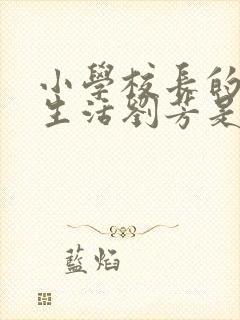 小學校長的
生活劉芳是
藍焰